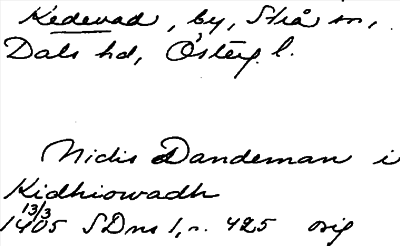 Kedevad, by, Strå sn,
Dals hd, Österg. l.
Niclis Dandeman i
Kidhiowadh
13/3
1405 SDns 1, s. 425 orig